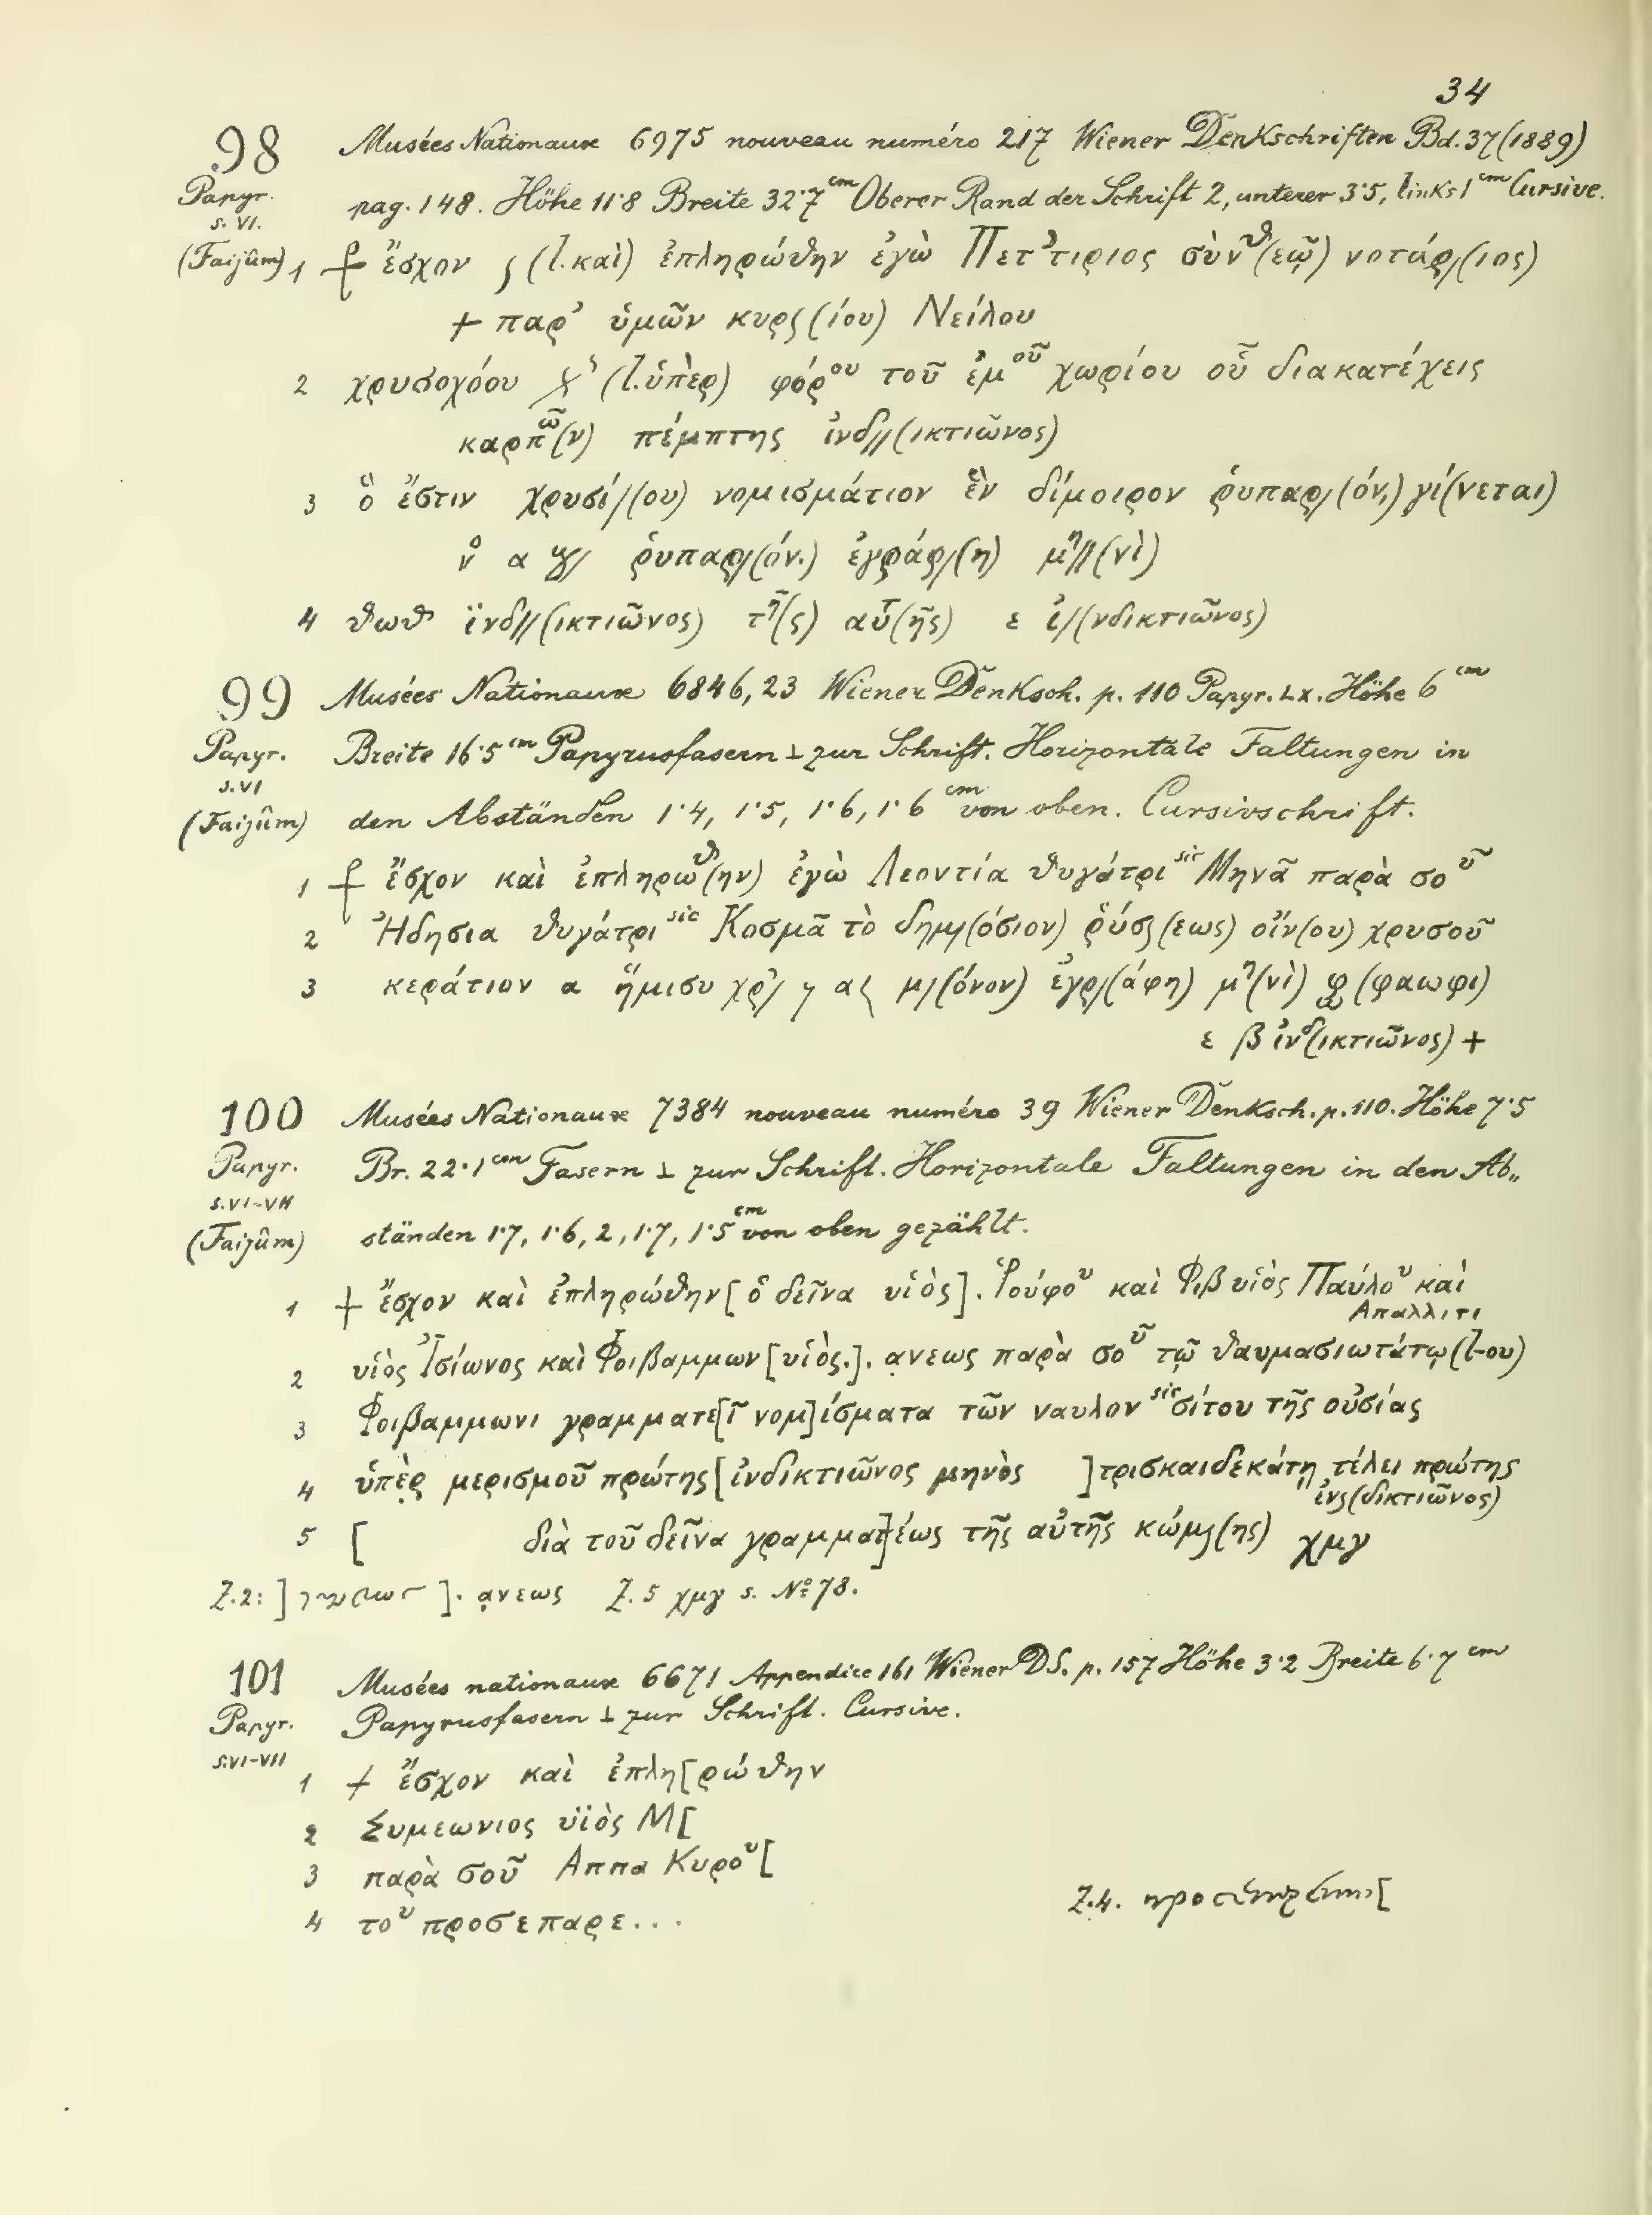 34
98 Musées Nationaux 6975 nouveau numéro 217 Wiener Denkschriften Bd. 37 (1889)
Papyr. s. VI. pag. 148. Höhe 11·8 Breite 32·7 cm Oberer Rand der Schrift 2, unterer 3·5, links 1 cm Cursive.
(Faijûm) 1 ⳨ ἔσχον ϛ (l. καὶ) ἐπληρώθην ἐγὼ Πετ᾽τιριος σὺν θ(εῷ) νοτάρ/(ιος)
+ παρ᾽ ὑμῶν κυρς(ίου) Νείλου
2 χρυσοχόου (l. ὑπὲρ) φόρου τοῦ ἐμοῦ χωρίου οὗ διακατέχεις
καρπῶ(ν) πέμπτης ἰνδ//(ικτιῶνος)
3 ὅ ἔστιν χρυσί/(ου) νομισμάτιον ἓν δίμοιρον ῥυπαρ/(όν,) γί(νεται)
ν̊ α ῥυπαρ/(όν.) ἐγράφ/(η) μη//(νὶ)
4 θωθ ϊνδ//(ικτιῶνος) τῆ(ς) αὐτ(ῆς) ε ἰ/(νδικτιῶνος)
99 Musées Nationaux 6846,23 Wiener Denksch. p. 110 Papyr. LX. Höhe 6 cm
Papyr. s. VI Breite 16·5 cm Papyrusfasern ⊥ zur Schrift. Horizontale Faltungen in
(Faijûm) den Abständen 1·4, 1·5, 1·6, 1·6 cm von oben. Cursivschrift.
1 ⳨ ἔσχον καὶ ἐπληρώθ(ην) ἐγὼ Λεοντία θυγάτρι sic Μηνᾶ παρὰ σοῦ
2 Ἡδησια θυγάτρι sic Κοσμᾶ τὸ δημ/(όσιον) ῥύσς(εως) οἴν(ου) χρυσοῦ
3 κεράτιον α ἥμισυ χρ/ γ αϛ μ/(όνον) ἐγρ/(άφη) μη(νὶ) φ (φαωφι)
ε β ἰνδ(ικτιῶνος) +
100 Musées Nationaux 7384 nouveau numéro 39 Wiener Denksch. p. 110. Höhe 7·5
Papyr. s. VI-VII Br. 22·1 cm Fasern ⊥ zur Schrift. Horizontale Faltungen in den Ab„
(Faijûm) ständen 1·7, 1·6, 2, 1·7, 1·5 cm von oben gezählt.
1 + ἔσχον καὶ ἐπληρώθην [ὁ δεῖνα υἱὸς]. Ῥούφου καὶ Φιβ υἱὸς Παύλου καὶ
Απαλλιτι
2 υἱὸς Ἰσίωνος καὶ Φοιβαμμων [υἱὸς.]. ανεως παρὰ σοῦ τῷ θαυμασιωτάτῳ (l -ου)
3 Φοιβαμμωνι γραμματε[ῖ νομ]ίσματα τῶν ναυλον sic σίτου τῆς οὐσίας
4 ὑπὲρ μερισμοῦ πρώτης [ἰνδικτιῶνος μηνὸς ] τρισκαιδεκάτῃ τέλει πρώτης
ἰνς(δικτιῶνος)
5 [ διὰ τοῦ δεῖνα γραμματ]έως τῆς αὐτῆς κώμς(ης) χμγ
Z. 2: ]. ανεως Z. 5 χμγ s. No 78.
101 Musées nationaux 6671 Appendice 161 Wiener DS. p. 157 Höhe 3·2 Breite 6·7 cm
Papyr. Papyrusfasern ⊥ zur Schrift. Cursive.
s. VI-VII
1 + ἔσχον καὶ ἐπλη[ρώθην
2 Συμεωνιος υἱὸς Μ[
3 παρὰ σοῦ Αππα Κυρου[
4 του προσεπαρε...
Z. 4.